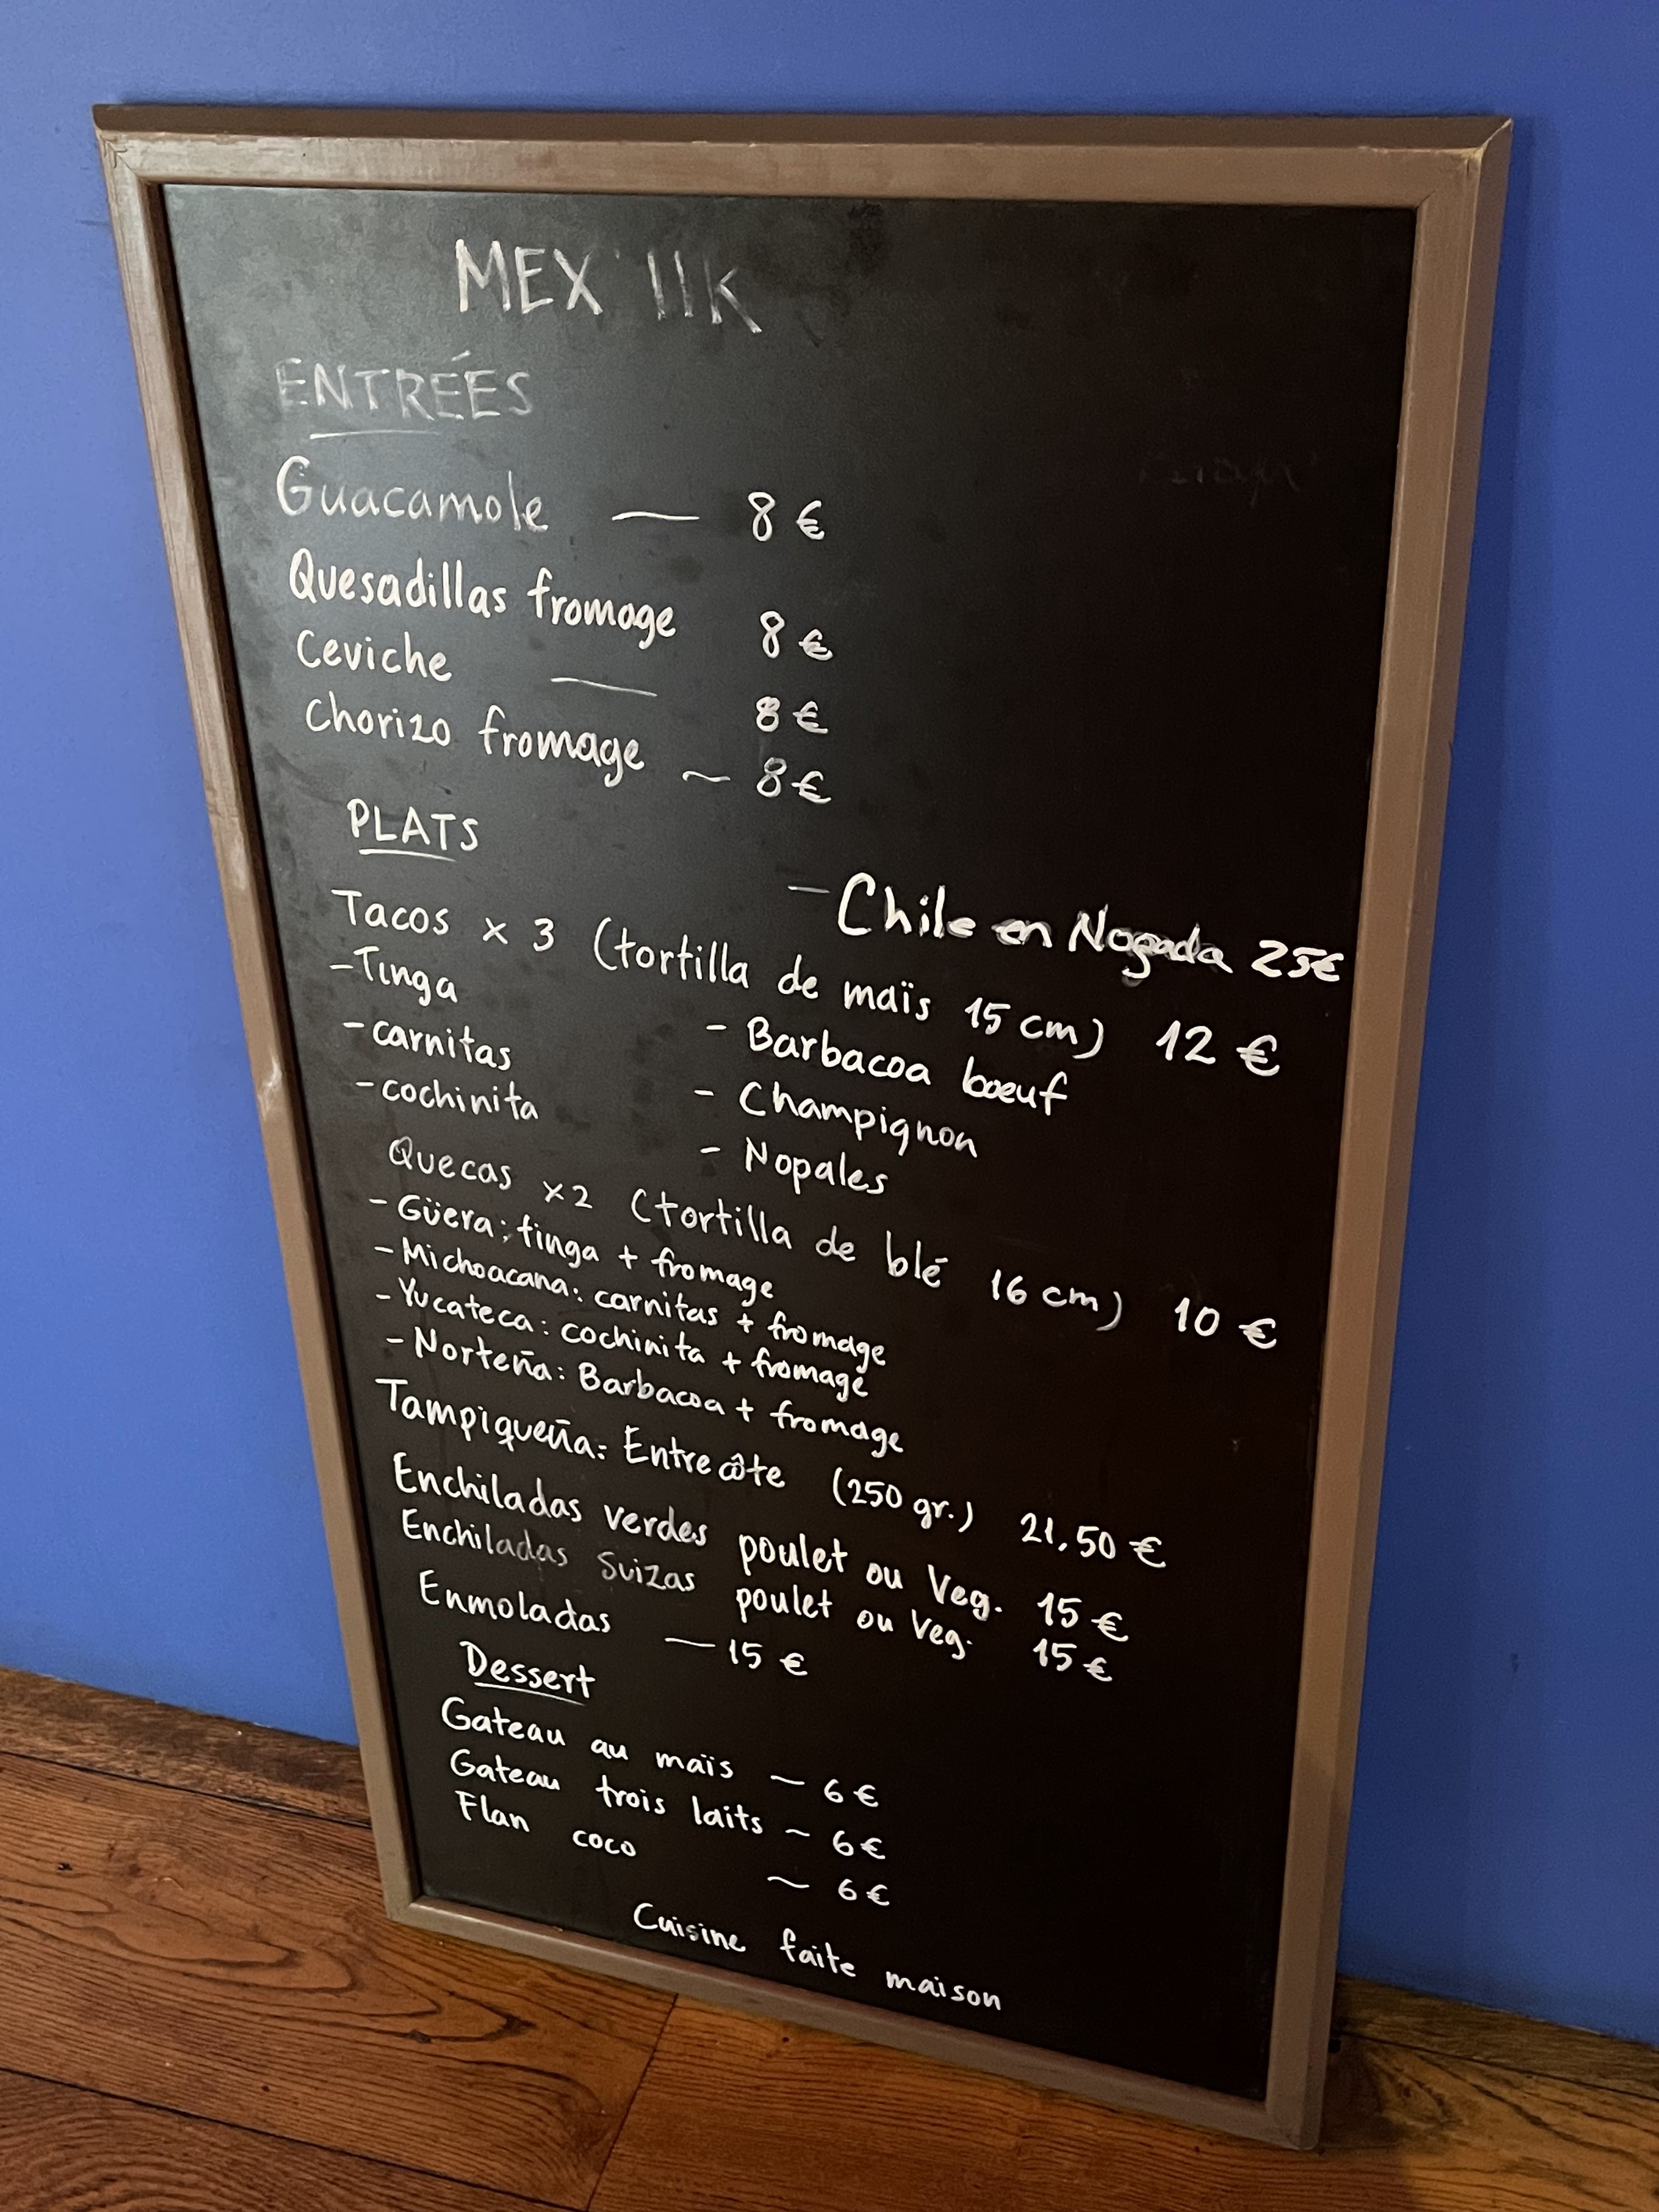 MEX'11K
ENTRÉES
Guacamole — 8 €
Quesadillas fromage 8 €
Ceviche — 8 €
Chorizo fromage ~ 8 €
PLATS
- Chile en Nogada 25€
Tacos x 3 (tortilla de maïs 15 cm) 12 €
- Tinga - Barbacoa boeuf
- carnitas - Champignon
- cochinita - Nopales
Quecas x2 (tortilla de blé 16 cm) 10 €
- Güera: tinga + fromage
- Michoacana: carnitas + fromage
- Yucateca: cochinita + fromage
- Norteña: Barbacoa + fromage
Tampiqueña: Entrecôte (250 gr.) 21,50 €
Enchiladas verdes poulet ou Veg. 15 €
Enchiladas Suizas poulet ou Veg. 15 €
Enmoladas — 15 €
Dessert
Gateau au maïs ~ 6 €
Gateau trois laits ~ 6 €
Flan coco ~ 6 €
Cuisine faite maison